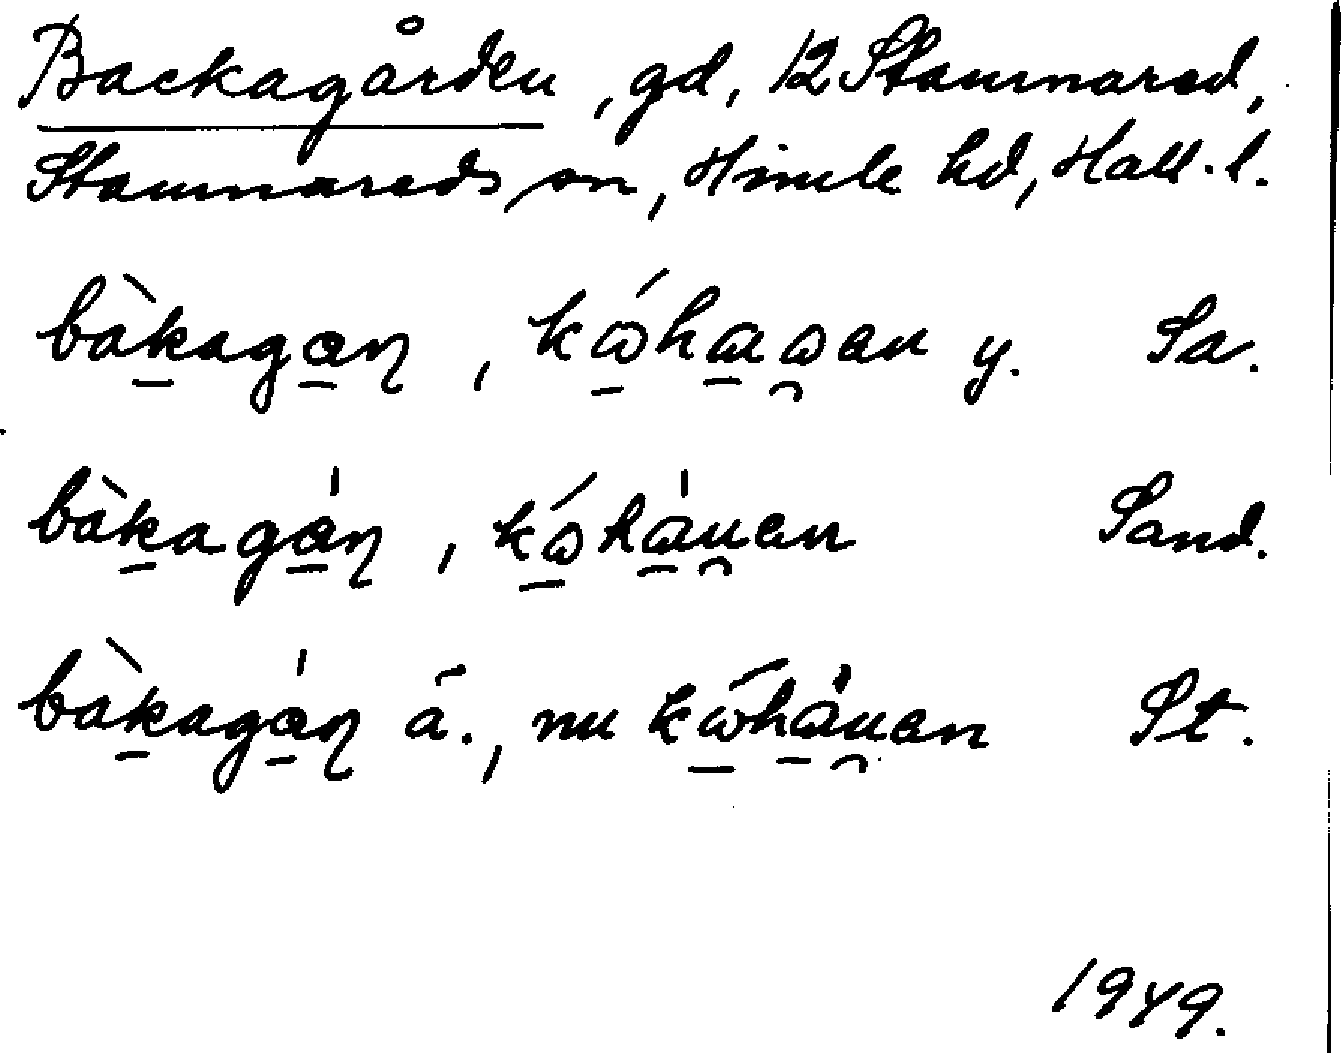 Backagården, gd, 12 Stamnared,
Stamnareds sn, Himle hd, Hall. l.
bàkagaɳ, kɷ́haɷen y. Sa.
bàkagáɳ, kɷ́háu̯en Sand.
bàkagáɳ ä., nu kɷ́háu̯en St.
1949.